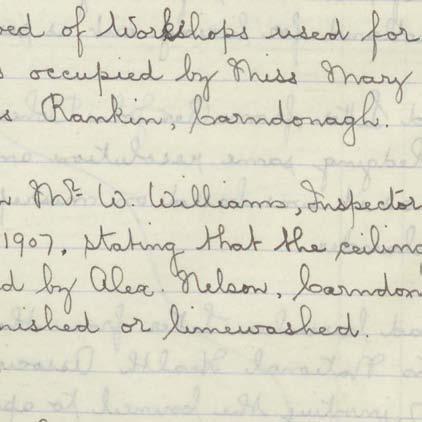 ved of Workshops used for
s occupied by Miss Mary
s Rankin, Carndonagh.
Mr. W. Williams, Inspector
1907, stating that the ceiling
d by Alex. Nelson, Carndon
nished or limewashed.